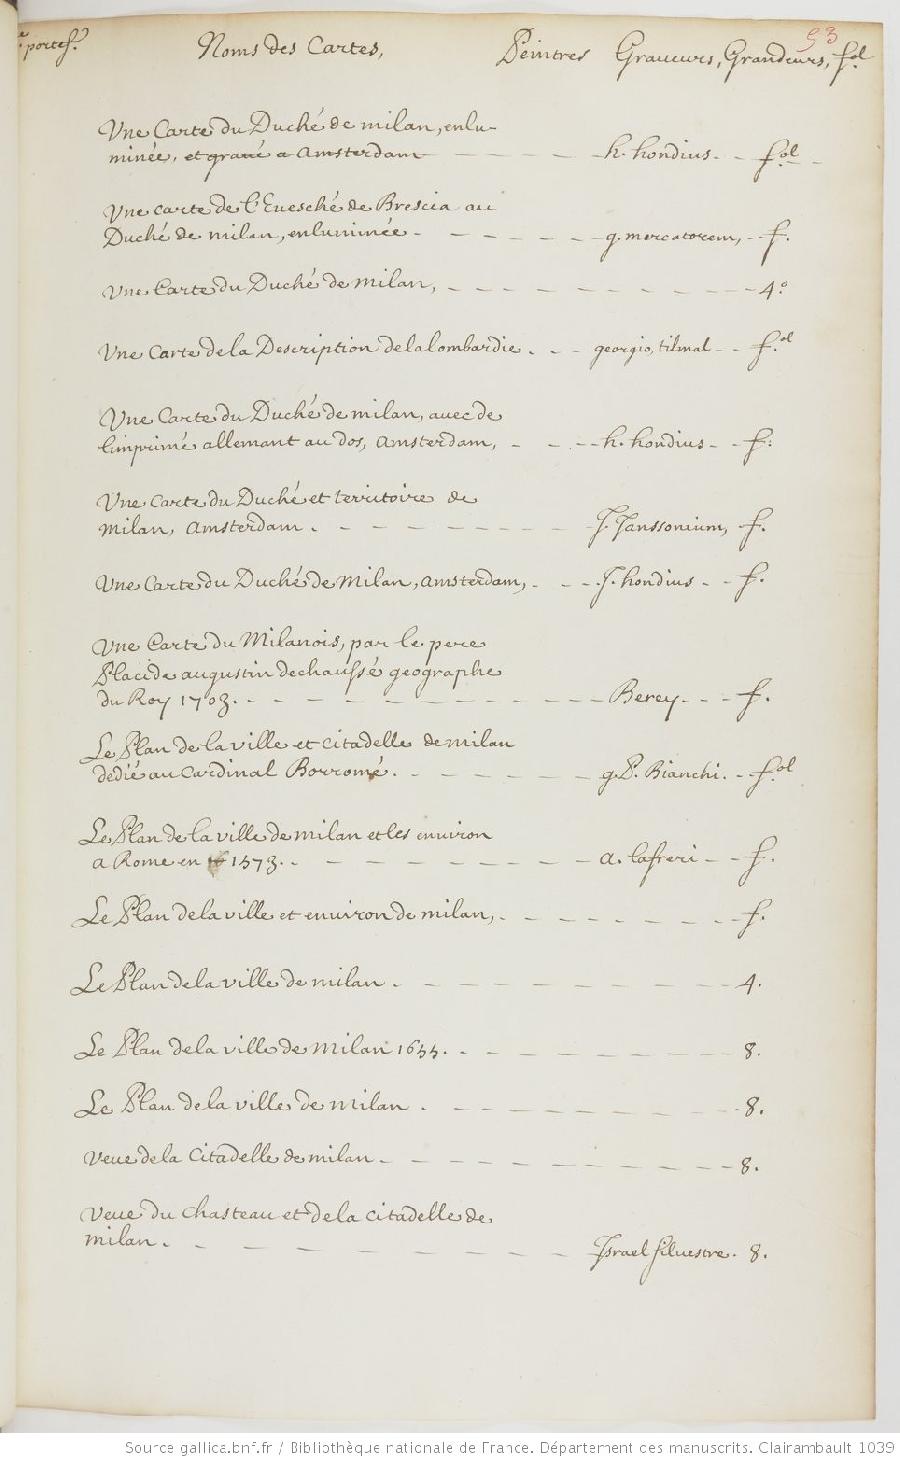 53
e portef.t Noms des Cartes, Peintres Graueurs, Grandeurs, fol.
Vne Carte du Duché de milan, enlu-
minée, et graué a amsterdam — — — — h. hondius. - - fol. -
Vne carte de l'Euesché de Brescia au
Duché de milan, enluminée - - - - - - g. mercatorem, - f.
Vne Carte du Duché de milan, - - - - - - - - - - - - 4.o
Vne Carte de la Description de la lombardie. - - georgio, tilmal - - fol.
Vne Carte du Duché de milan, auec de
l'imprimé allemant au dos, amsterdam, - - - - h. hondius - - f.
Vne Carte du Duché et territoire de
milan, amsterdam. - - - - - - - - - - J. Janssonium, f.
Vne Carte du Duché de Milan, amsterdam, - - - J. hondius - - f.
Vne Carte du Milanois, par le pere
Placide augustin dechaussé geographe
du Roy 1703. - - - - - - - - - - - Berey - - - f.
Le Plan de la ville et citadelle de milan
dedié au Cardinal Borromé. - - - - - - g. P. Bianchi. - fol.
Le Plan de la ville de milan et les enuiron
a Rome en 1573. - - - - - - - - - a. lafreri - - f.
Le Plan de la ville et enuiron de milan, - - - - - - - - f.
Le Plan de la ville de milan. - - - - - - - - - - - 4.
Le Plan de la ville de milan 1655. - - - - - - - - - 8.
Le Plan de la ville de milan. - - - - - - - - - - - 8.
veue de la Citadelle de milan - - - - - - - - - - - 8.
veue du chasteau et de la citadelle de
milan. - - - - - - - - - - - - Israel siluestre. 8.
Source gallica.bnf.fr / Bibliothèque nationale de France. Département des manuscrits. Clairambault 1039